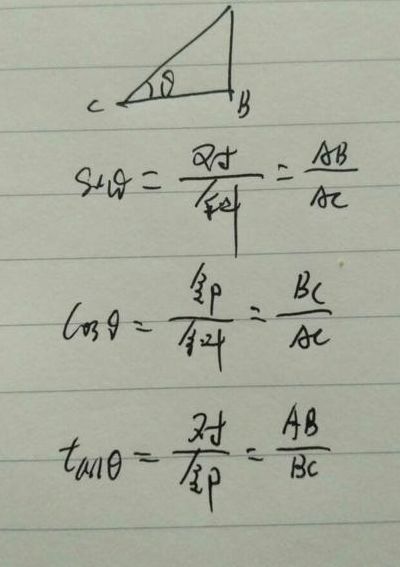 θ
C B
sinθ = 对/斜 = AB/AC
cosθ = 邻/斜 = BC/AC
tanθ = 对/邻 = AB/BC